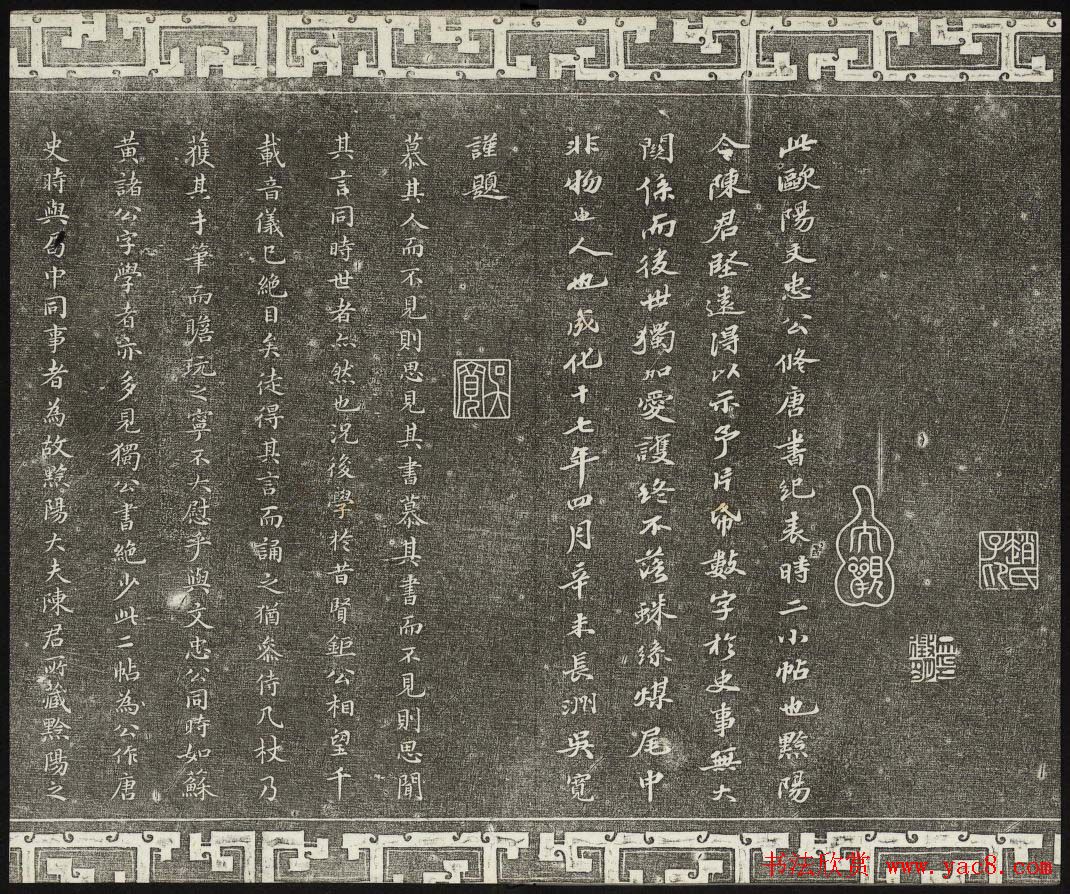 此歐陽文忠公脩唐書紀表時二小帖也黟陽
令陳君堅遠得以示予片帋數字於史事無大
関係而後世獨加愛護终不落蛛絲煤尾中
非物也人也成化十七年四月辛未長洲吳寬
謹題
吳寬
慕其人而不見則思見其書慕其書而不見則思聞
其言同時世者亦然也況後學於昔賢鉅公相望千
載音儀已絶目矣徒得其言而誦之猶叅侍几杖乃
獲其手筆而瞻玩之寧不大慰乎與文忠公同時如蘇
黃諸公字學者亦多見獨公書絶少此二帖為公作唐
史時與局中同事者為故黟陽大夫陳君所藏黟陽之
大觀
趙氏子印
书法欣赏 www.yac8.com